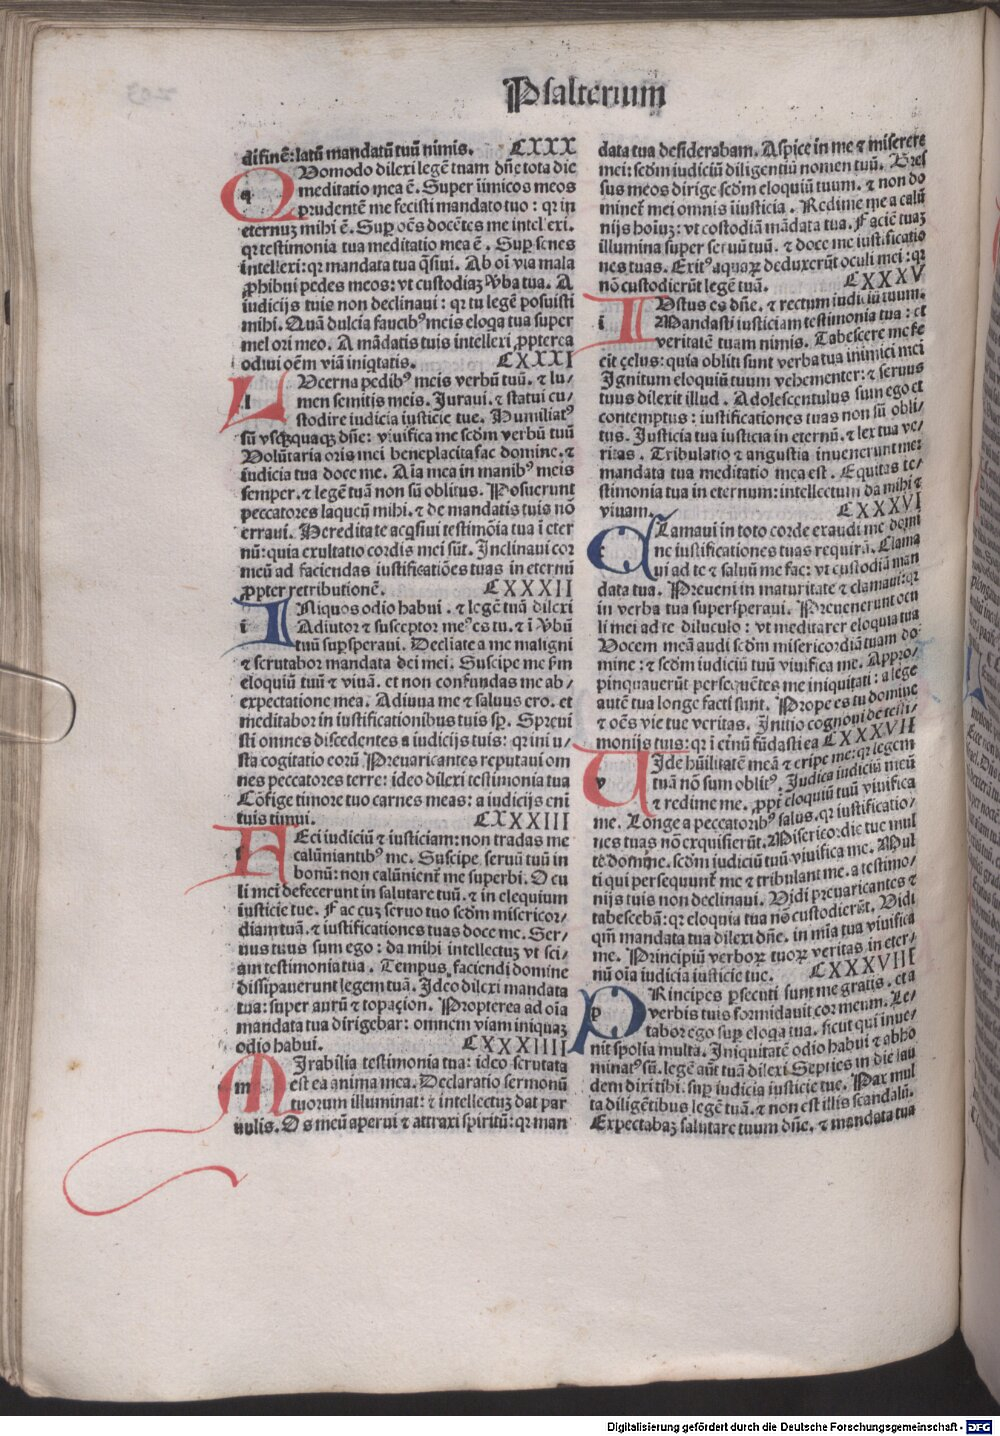 Psalterium
di finē: latū mandatū tuū nimis. CXXX
QUomodo dilexi legē tuam dn̄e tota die
meditatio mea ē. Super iīmicos meos
prudentē me fecisti mandato tuo : qr in
eternuꝫ mihi ē. Suꝑ oēs docētes me intellexi.
qr testimonia tua meditatio mea ē . Suꝑ senes
intellexi: qr mandata tua q̄siui. Ab oī via mala
ꝓhibui pedes meos: vt custodiaꝫ v̄ba tua. A
iudicijs tuis non declinaui : qr tu legē posuisti
mihi. Quā dulcia faucibꝰ meis eloq̄a tua super
mel ori meo. A mādatis tuis intellexi ꝓpterea
odiui oēm viā iniq̄tatis. CXXXI
LUcerna pedibꝰ meis verbū tuū. ⁊ lu/
men semitis meis. Iuraui. ⁊ statui cu/
stodire iudicia iusticie tue. Humiliatꝰ
sū vsq̄quaqꝫ dn̄e: viuifica me scd̄m verbū tuū
Uolūtaria oris mei beneplacita fac domine. ⁊
iudicia tua doce me. Aīa mea in manibꝰ meis
semper. ⁊ legē tuā non sū oblitus. Posuerunt
peccatores laqueū mihi. ⁊ de mandatis tuis nō
erraui. Hereditate acq̄siui testimōia tua ī eter
nū: quia exultatio cordis mei sūt. Inclinaui cor
meū ad faciendas iustificatiōes tuas in eternū
ꝓpter retributionē. CXXXII
INiquos odio habui . ⁊ legē tuā dilexi
Adiutor ⁊ susceptor meꝰ es tu. ⁊ ī v̄bū
tuū suꝑsperaui. Decliate a me maligni
⁊ scrutabor mandata dei mei. Suscipe me ẜm
eloquiū tuū ⁊ viuā. et non confundas me ab/
expectatione mea. Adiuua me ⁊ saluus ero. et
meditabor in iustificationibus tuis sꝑ. Spreui
sti omnes discedentes a iudicijs tuis: qr ini u/
sta cogitatio eorū Preuaricantes reputaui om
nes peccatores terre: ideo dilexi testimonia tua
Cōfige timore tuo carnes meas: a iudicijs enī
tuis timui. CXXXIII
FEci iudiciū ⁊ iusticiam: non tradas me
calūniantibꝰ me. Suscipe seruū tuū in
bonū: non calūnient̄ me superbi. Ocu
li mei defecerunt in salutare tuū. ⁊ in eloquium
iusticie tue. Fac cuꝫ seruo tuo scd̄m misericor/
diam tuā. ⁊ iustificationes tuas doce me. Ser/
uus tuus sum ego : da mihi intellectuꝫ vt sci/
am testimonia tua . Tempus faciendi domine
dissipauerunt legem tuā. Ideo dilexi mandata
tua: super aurū ⁊ topaçion. Propterea ad oīa
mandata tua dirigebar: omnem viam iniquaꝫ
odio habui. CXXXIIII
MIrabilia testimonia tua: ideo scrutata
est ea anima mea. Declaratio sermonū
tuorum illuminat: ⁊ intellectuꝫ dat par
uulis. Os meū aperui ⁊ attraxi spiritū: qr man
data tua desiderabam. Aspice in me ⁊ miserere
mei: scd̄m iudiciū diligentiū nomen tuū. Gres
sus meos dirige scd̄m eloquiū tuum. ⁊ non do
minet̄ mei omnis iīusticia . Redime me a calū
nijs hoiuꝫ: vt custodiā mādata tua. Faciē tuaꝫ
illumina super seruū tuū. ⁊ doce me iustificatio
nes tuas. Exitꝰ aquaꝝ deduxerūt oculi mei : qr
nō custodierūt legē tuā. CXXXV
IUstus es dn̄e. ⁊ rectum iudiciū tuum.
Mandasti iusticiam testimonia tua : et
veritatē tuam nimis. Tabescere me fe
cit çelus: quia obliti sunt verba tua inimici mei
Ignitum eloquiū tuum vehementer: ⁊ seruus
tuus dilexit illud. Adolescentulus sum ego et
contemptus : iustificationes tuas non sū obli/
tus. Iusticia tua iusticia in eternū. ⁊ lex tua ve/
ritas . Tribulatio ⁊ angustia inuenerunt me:
mandata tua meditatio mea est . Equitas te/
stimonia tua in eternum: intellectum da mihi ⁊
viuam. CXXXVI
CLamaui in toto corde exaudi me domi
ne iustificationes tuas requirā. Clama
ui ad te ⁊ saluū me fac: vt custodiā man
data tua. Preueni in maturitate ⁊ clamaui: qr
in verba tua supersperaui. Preuenerunt ocu
li mei ad te diluculo : vt meditarer eloquia tua
Uocem meā audi scd̄m misericordiā tuam do/
mine : ⁊ scd̄m iudiciū tuū viuifica me. Appro/
pinquauerūt persequētes me iniquitati : a lege
autē tua longe facti sunt. Prope es tu domine
⁊ oēs vie tue veritas. Initio cognoui de testi/
monijs tuis: qr ī et̄nū fūdasti ea CXXXVII
UIde hūilitatē meā ⁊ eripe me: qr legem
tuā nō sum oblitꝰ. Iudica iudiciū meū
⁊ redime me. ꝓpt̄ eloquiū tuū viuifica
me. Longe a peccatoribꝰ salus. qr iustificatio/
nes tuas nō exquisierūt. Misericordie tue mul
te domine. scd̄m iudiciū tuū viuifica me. Mul
ti qui persequunt̄ me ⁊ tribulant me. a testimo/
nijs tuis non declinaui. Uidi preuaricantes ⁊
tabescebā: qr eloquia tua nō custodierūt. Uidi
qm̄ mandata tua dilexi dn̄e. in mīa tua viuifica
me. Principiū verboꝝ tuoꝝ veritas in eter/
nū oīa iudicia iusticie tue. CXXXVIII
PRincipes ꝑsecuti sunt me gratis. et a
verbis tuis formidauit cor meum. Le/
tabor ego suꝑ eloq̄a tua. sicut qui inue/
nit spolia multa. Iniquitatē odio habui ⁊ abho
minatꝰ sū. legē aūt tuā dilexi Septies in die lau
dem dixi tibi. suꝑ iudicia iusticie tue. Pax mul
ta diligētibus legē tuā. ⁊ non est illis scandalū.
Expectabaꝫ salutare tuum dn̄e. ⁊ mandata tua
Digitalisierung gefördert durch die Deutsche Forschungsgemeinschaft - DFG